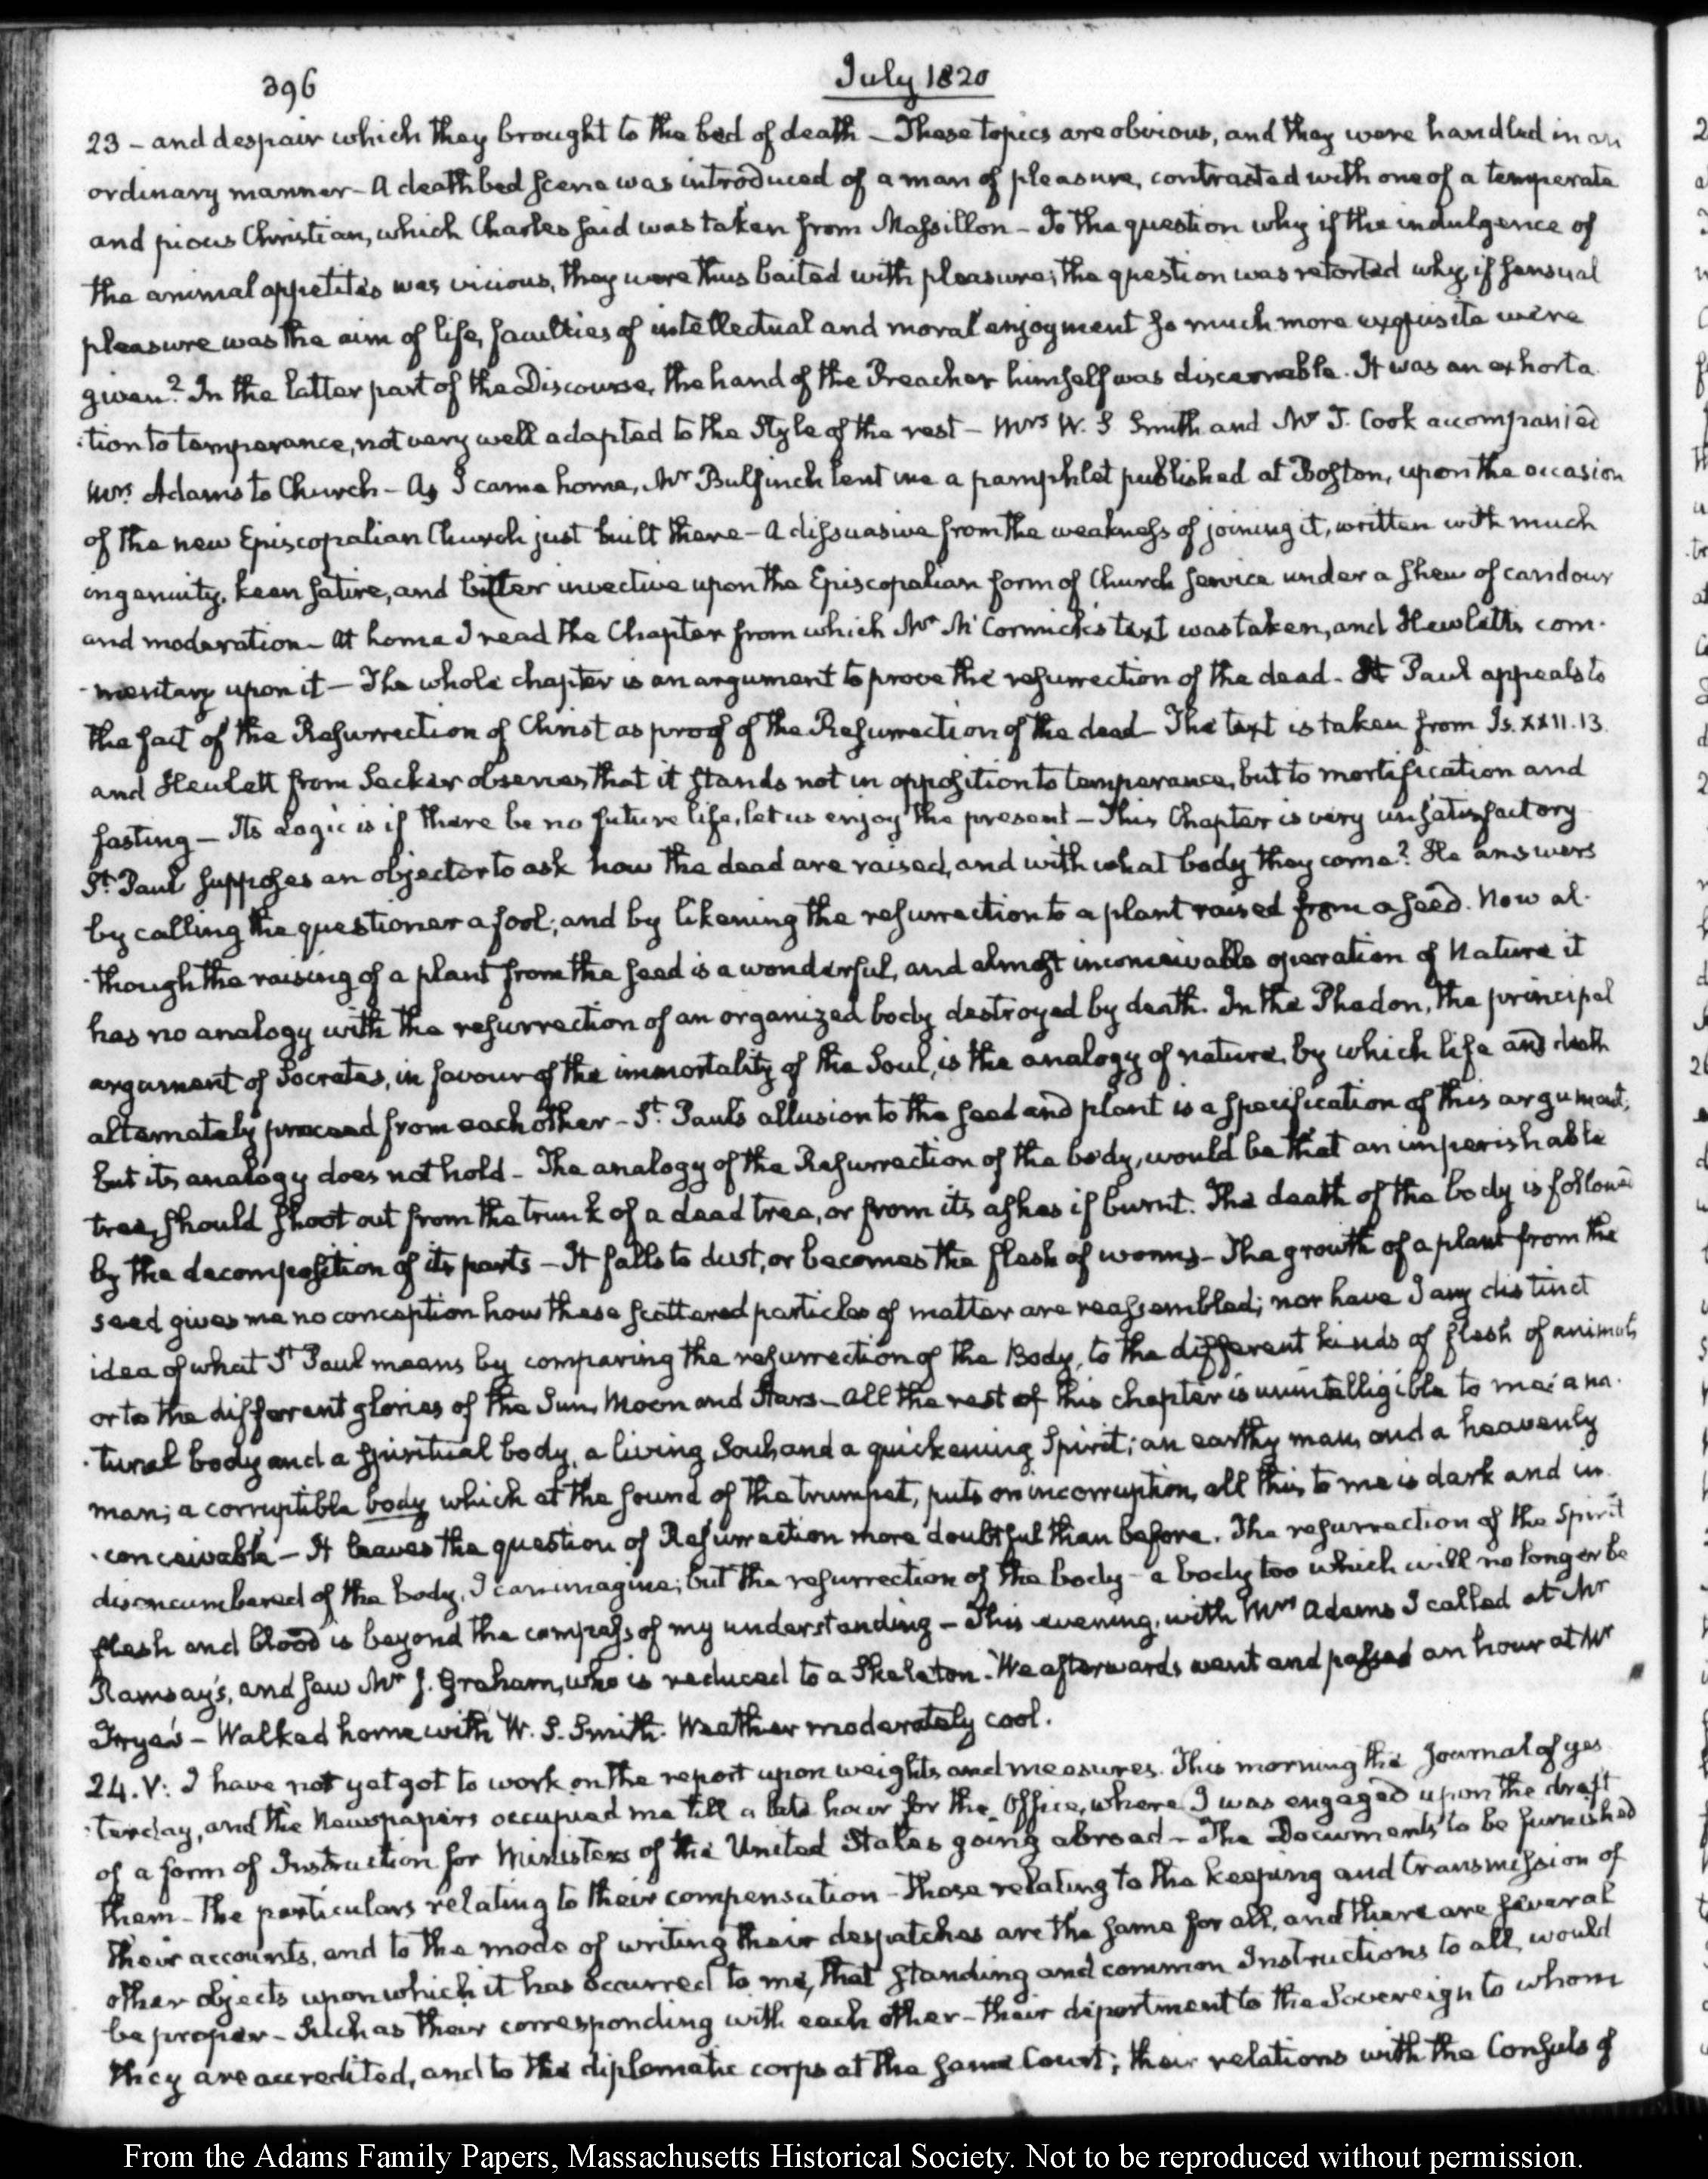 396
July 1820
23 - and despair which they brought to the bed of death - These topics are obvious, and they were handled in an
ordinary manner - A deathbed scene was introduced of a man of pleasure, contrasted with one of a temperate
and pious Christian, which Charles said was taken from Massillon - To the question why if the indulgence of
the animal appetites was vicious, they were thus baited with pleasure; the question was retorted why, if sensual
pleasure was the aim of life, faculties of intellectual and moral enjoyment so much more exquisite were
given? In the latter part of the Discourse, the hand of the Preacher himself was discernable. It was an exhorta
:tion to temperance, not very well adapted to the Style of the rest - Mrs W. S Smith and Mr J. Cook accompanied
Mrs Adams to Church - As I came home, Mr Bulfinch lent me a pamphlet published at Boston, upon the occasion
of the new Episcopalian Church just built there - A dissuasive from the weakness of joining it, written with much
ingenuity, keen satire, and bitter invective upon the Episcopalian form of Church service under a shew of candour
and moderation - At home I read the Chapter from which Mr McCormick's text was taken, and Hewlett's com-
-mentary upon it - The whole chapter is an argument to prove the resurrection of the dead - St Paul appeals to
the fact of the Resurrection of Christ as proof of the Resurrection of the dead - The text is taken from Is. XXII. 13.
and Hewlett from Secker observes that it stands not in opposition to temperance, but to mortification and
fasting - Its Logic is if there be no future life, let us enjoy the present - This Chapter is very unsatisfactory
St. Paul supposes an objector to ask how the dead are raised, and with what body they come? He answers
by calling the questioner a fool; and by likening the resurrection to a plant raised from a seed. Now al-
-though the raising of a plant from the seed is a wonderful, and almost inconceivable operation of Nature it
has no analogy with the resurrection of an organized body destroyed by death. In the Phedon, the principal
argument of Socrates, in favour of the immortality of the Soul, is the analogy of nature, by which life and death
alternately proceed from each other - St. Paul's allusion to the seed and plant is a specification of this argument;
but its analogy does not hold - The analogy of the Resurrection of the body, would be that an imperishable
tree, should shoot out from the trunk of a dead tree, or from its ashes if burnt. The death of the body is followed
by the decomposition of its parts - It falls to dust, or becomes the flesh of worms - The growth of a plant from the
seed gives me no conception how these scattered particles of matter are reassembled; nor have I any distinct
idea of what St Paul means by comparing the resurrection of the Body, to the different kinds of flesh of animals
or to the different glories of the Sun, Moon and Stars - All the rest of this chapter is unintelligible to me: a na-
-tural body and a spiritual body, a living Soul, and a quickening Spirit; an earthy man, and a heavenly
man; a corruptible body which at the sound of the trumpet, puts on incorruption, all this to me is dark and in
-conceivable - It leaves the question of Resurrection more doubtful than before. The resurrection of the Spirit
disencumbered of the body, I can imagine; but the resurrection of the body - a body too which will no longer be
flesh and blood is beyond the compass of my understanding - This evening, with Mrs Adams I called at Mr
Ramsay's, and saw Mr J. Graham, who is reduced to a Skeleton. We afterwards went and passed an hour at Mr
Frye's - Walked home with W. S. Smith. Weather moderately cool.
24. V: I have not yet got to work on the report upon weights and measures. This morning the Journal of yes
-terday, and the Newspapers occupied me till a late hour for the Office, where I was engaged upon the draft
of a form of Instruction for Ministers of the United States going abroad - The Documents to be furnished
them - The particulars relating to their compensation - Those relating to the keeping and transmission of
their accounts, and to the mode of writing their despatches are the same for all, and there are several
other objects upon which it has occurred to me, that standing and common Instructions to all, would
be proper - Such as their corresponding with each other - their deportment to the Sovereign to whom
they are accredited, and to the diplomatic corps at the same Court; their relations with the Consuls of
From the Adams Family Papers, Massachusetts Historical Society. Not to be reproduced without permission.